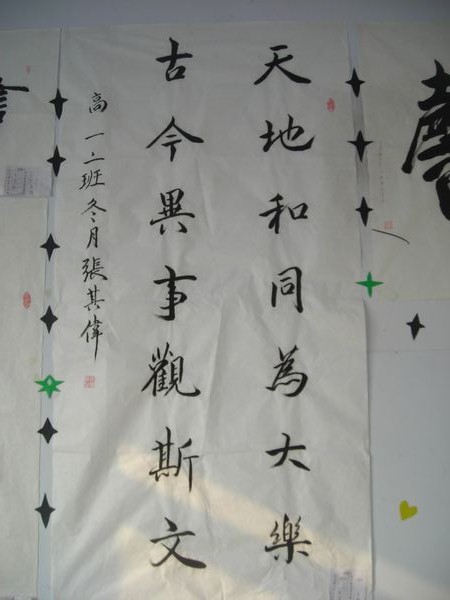 天地和同為大樂
古今異事觀斯文
高一二班冬月張其偉